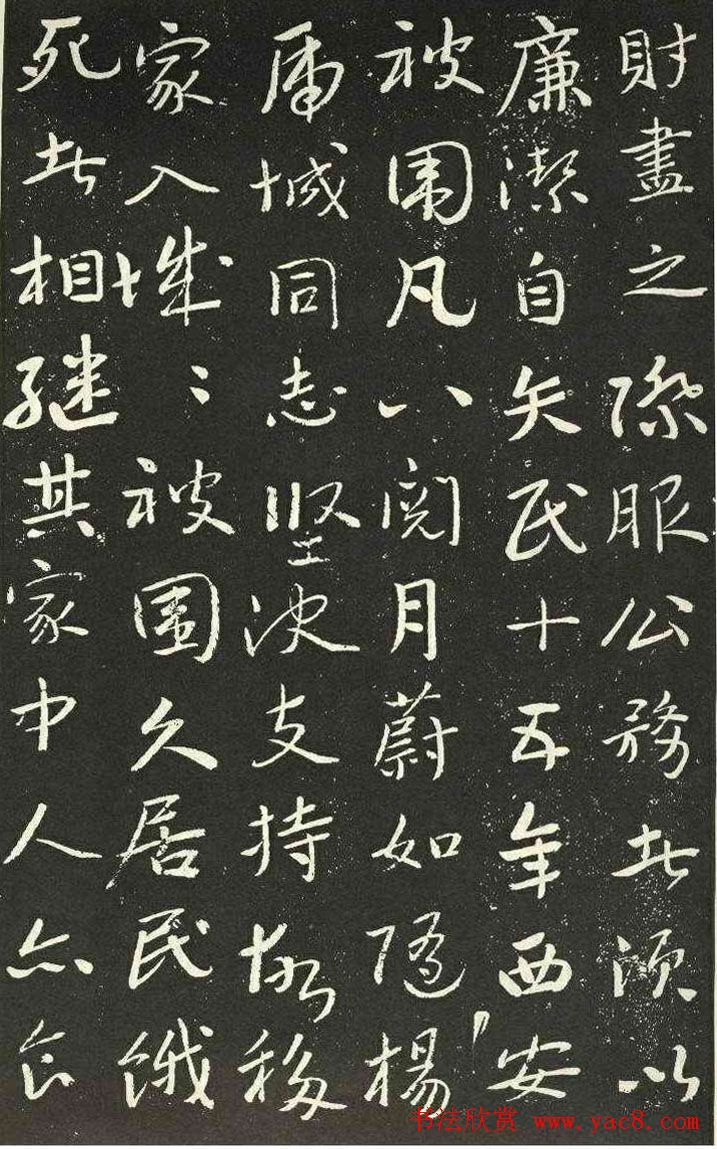 財盡之際服公務者須以
廉潔自矢民十五年西安
被围凡八閱月蔚如随楊
虎城同志坚决支持故移
家入城〻被围久居民餓
死者相継其家中人亦食
书法欣赏 www.yac8.com